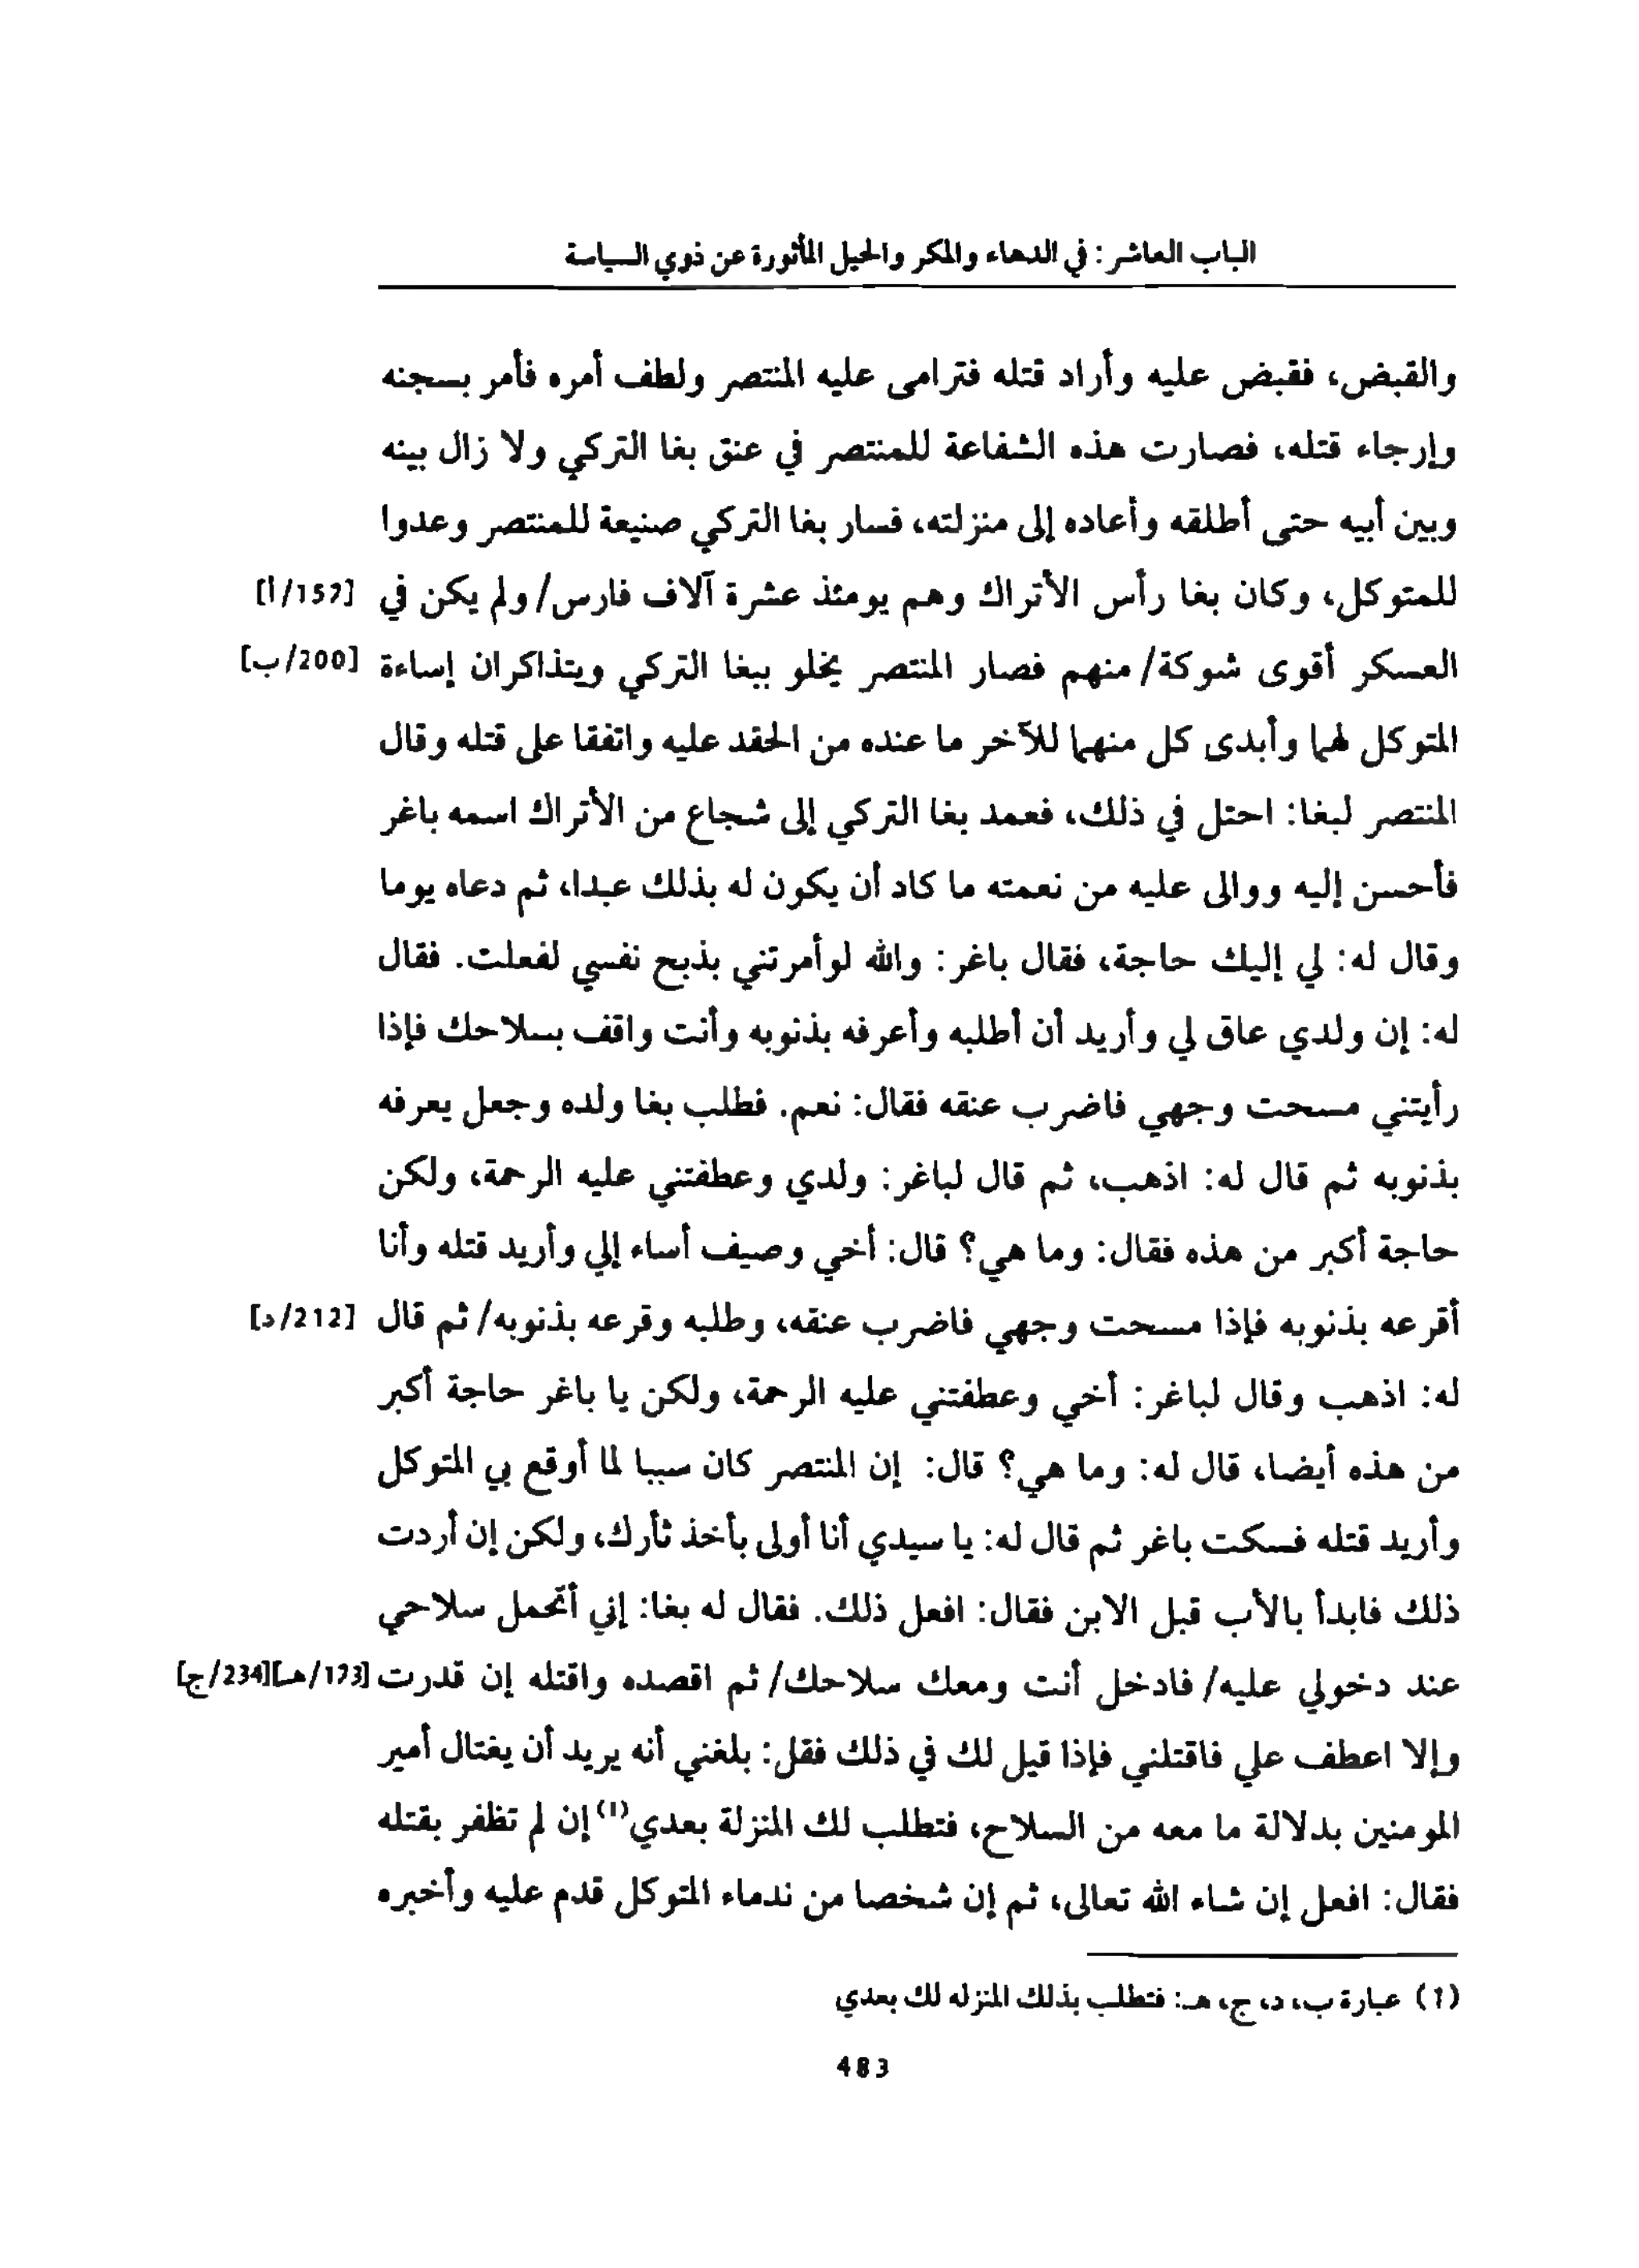 الباب العاشر: في الدهاء والمكر والحيل المأثورة عن ذوي السياسة
والقبض، فقبض عليه وأراد قتله فترامى عليه المنتصر ولطف أمره فأمر بسجنه
وإرجاء قتله، فصارت هذه الشفاعة للمنتصر في عنق بغا التركي ولا زال بينه
وبين أبيه حتى أطلقه وأعاده إلى منزلته، فسار بغا التركي صنيعة للمنتصر وعدوا
للمتوكل، وكان بغا رأس الأتراك وهم يومئذ عشرة آلاف فارس/ ولم يكن في [157/أ]
العسكر أقوى شوكة/ منهم فصار المنتصر يخلو ببغا التركي ويتذاكران إساءة [200/ب]
المتوكل لهما وأبدى كل منهما للآخر ما عنده من الحقد عليه واتفقا على قتله وقال
المنتصر لبغا: احتل في ذلك، فعمد بغا التركي إلى شجاع من الأتراك اسمه باغر
فأحسن إليه ووالى عليه من نعمته ما كاد أن يكون له بذلك عبدا، ثم دعاه يوما
وقال له: لي إليك حاجة، فقال باغر: والله لوأمرتني بذبح نفسي لفعلت. فقال
له: إن ولدي عاق لي وأريد أن أطلبه وأعرفه بذنوبه وأنت واقف بسلاحك فإذا
رأيتني مسحت وجهي فاضرب عنقه فقال: نعم. فطلب بغا ولده وجعل يعرفه
بذنوبه ثم قال له: اذهب، ثم قال لباغر: ولدي وعطفتني عليه الرحمة، ولكن
حاجة أكبر من هذه فقال: وما هي؟ قال: أخي وصيف أساء إلي وأريد قتله وأنا
أقرعه بذنوبه فإذا مسحت وجهي فاضرب عنقه، وطلبه وقرعه بذنوبه/ ثم قال [212/د]
له: اذهب وقال لباغر: أخي وعطفتني عليه الرحمة، ولكن يا باغر حاجة أكبر
من هذه أيضا، قال له: وما هي؟ قال: إن المنتصر كان سببا لما أوقع بي المتوكل
وأريد قتله فسكت باغر ثم قال له: يا سيدي أنا أولى بأخذ ثأرك، ولكن إن أردت
ذلك فابدأ بالأب قبل الابن فقال: افعل ذلك. فقال له بغا: إني أتحمل سلاحي
عند دخولي عليه/ فادخل أنت ومعك سلاحك/ ثم اقصده واقتله إن قدرت [173/هـ][234/ج]
وإلا اعطف علي فاقتلني فإذا قيل لك في ذلك فقل: بلغني أنه يريد أن يغتال أمير
المومنين بدلالة ما معه من السلاح، فتطلب لك المنزلة بعدي(1) إن لم تظفر بقتله
فقال: افعل إن شاء الله تعالى، ثم إن شخصا من ندماء المتوكل قدم عليه وأخبره
(1) عبارة ب، د، ج، هـ: فتطلب بذلك المنزله لك بعدي
483